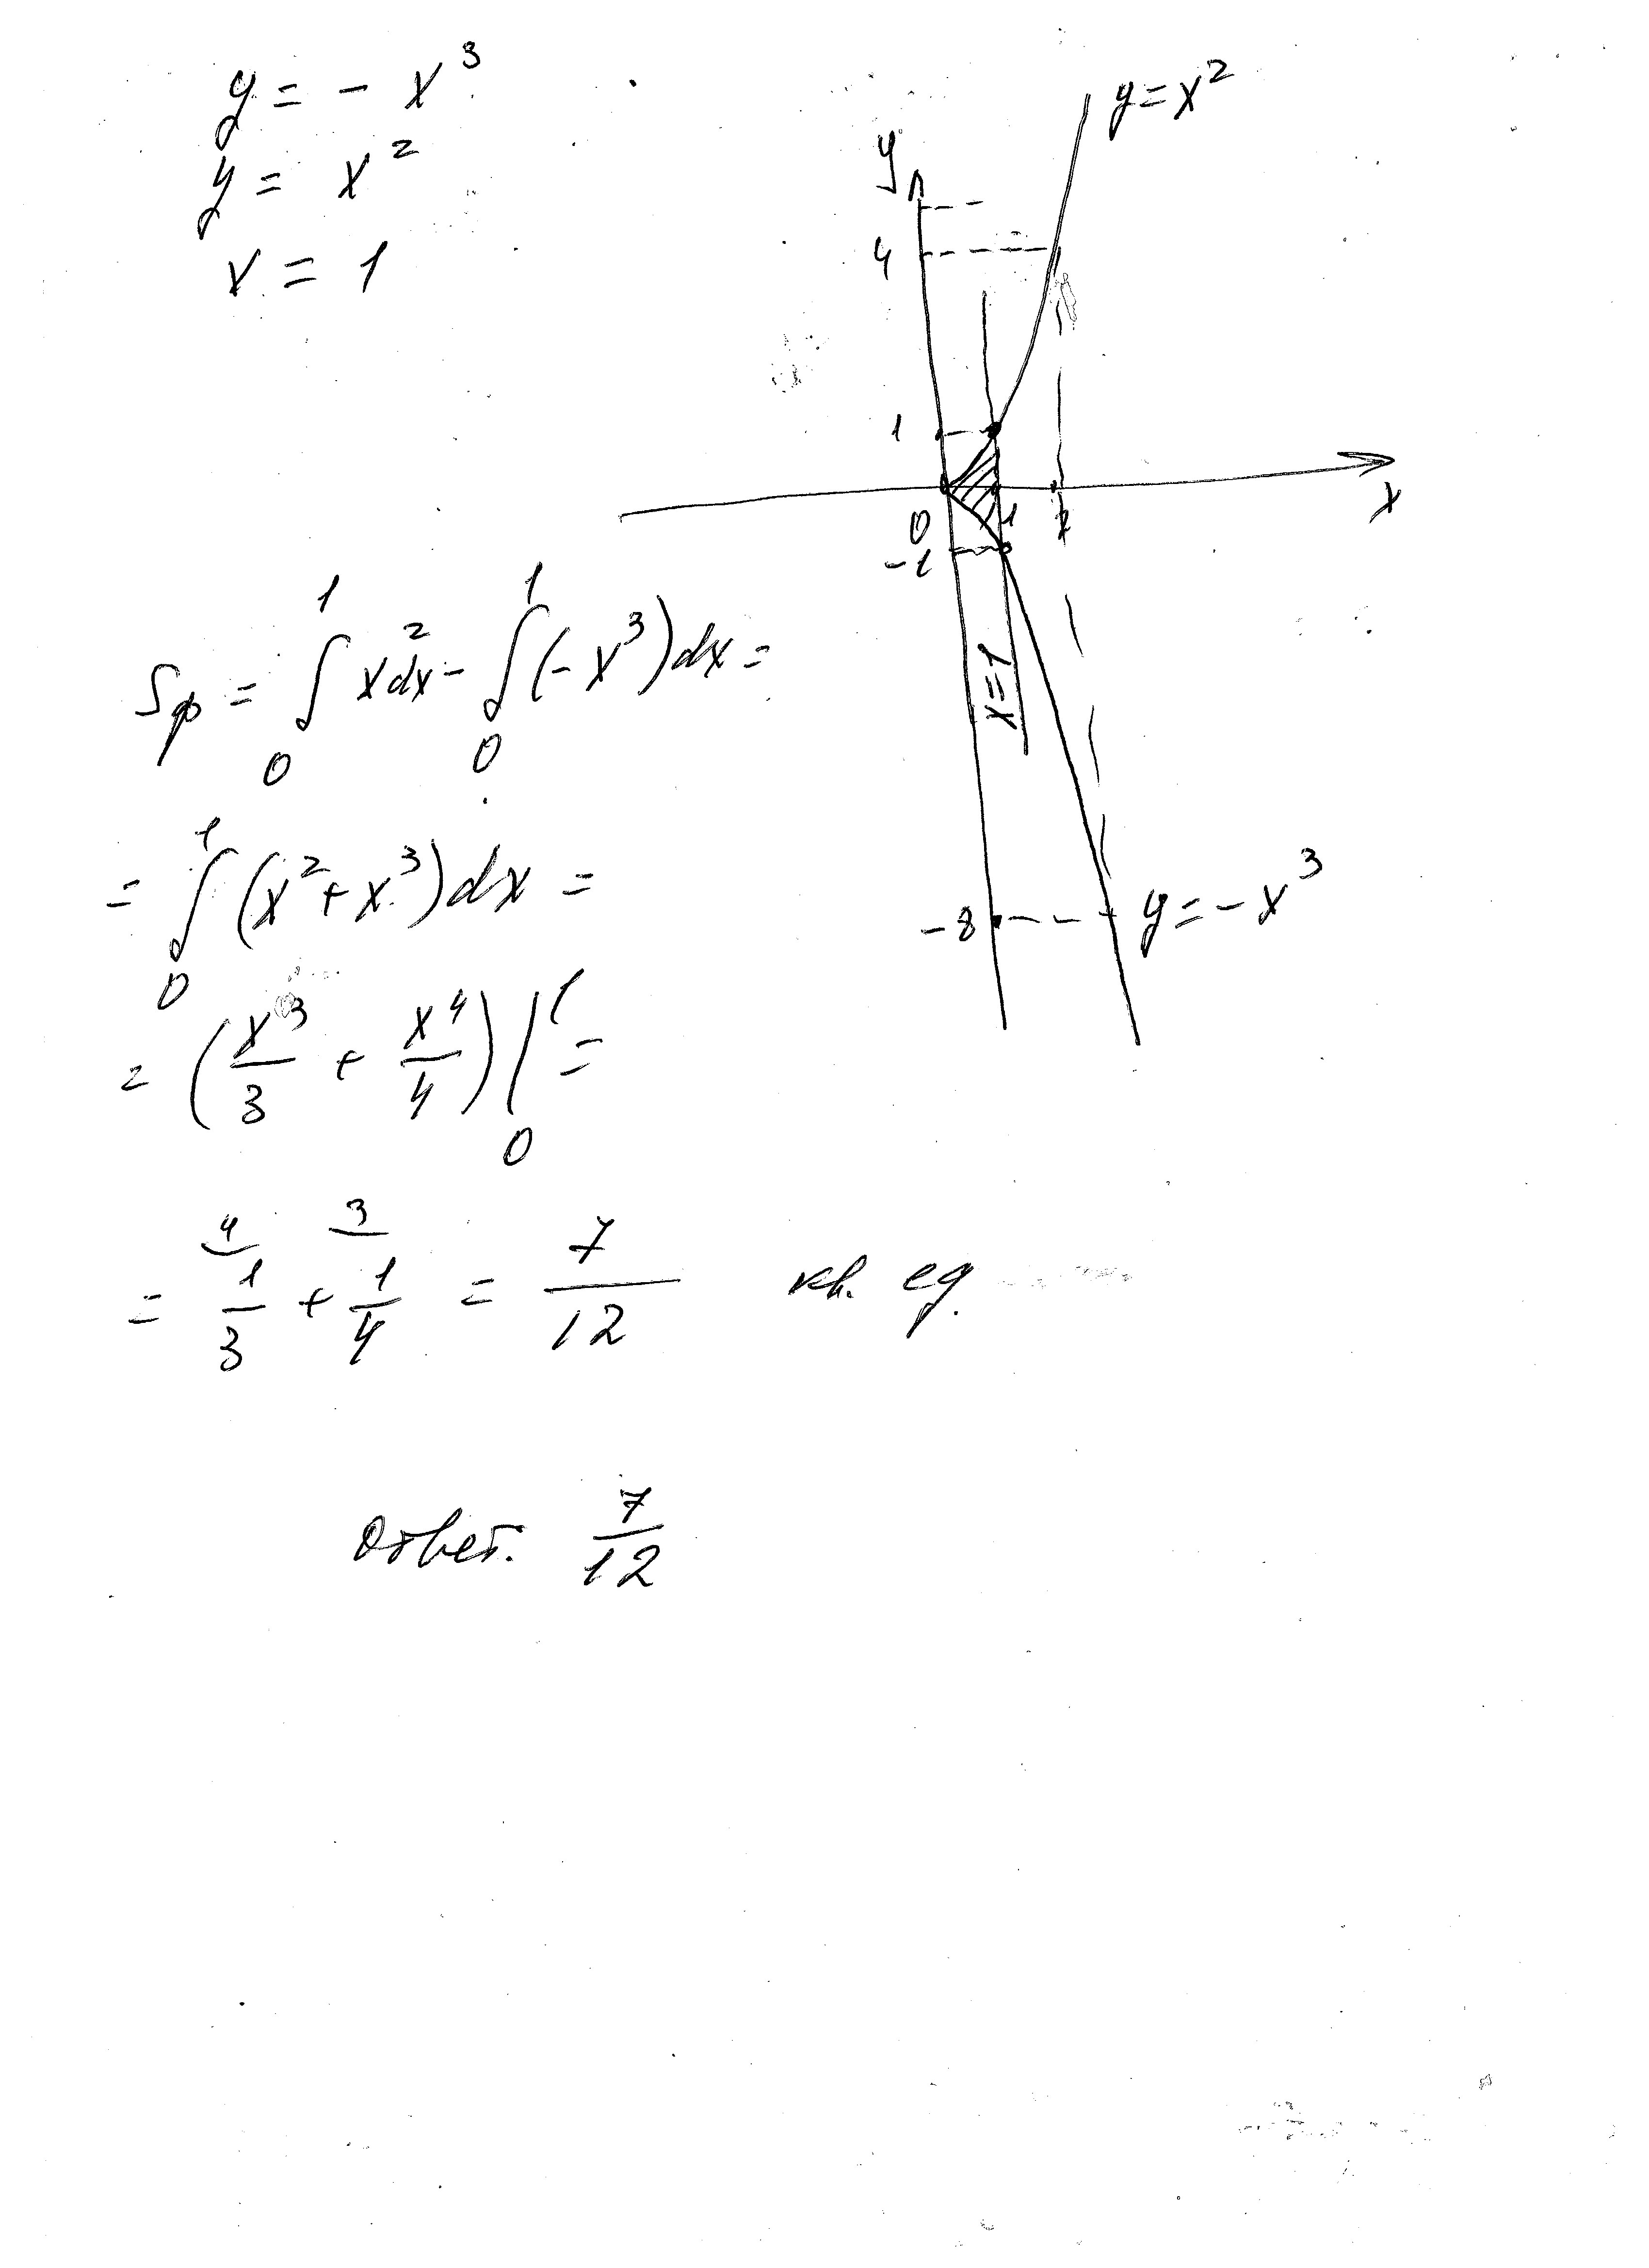 y = - x³
y = x²
x = 1
y = x²
y
4
1
0
1
2
x
-1
x = 1
-8
y = - x³
Sф = ∫₀¹ x²dx - ∫₀¹ (- x³) dx =
= ∫₀¹ (x² + x³) dx =
= (x³/3 + x⁴/4) |₀¹ =
4 3
= 1/3 + 1/4 = 7/12 кв. ед.
Ответ. 7/12